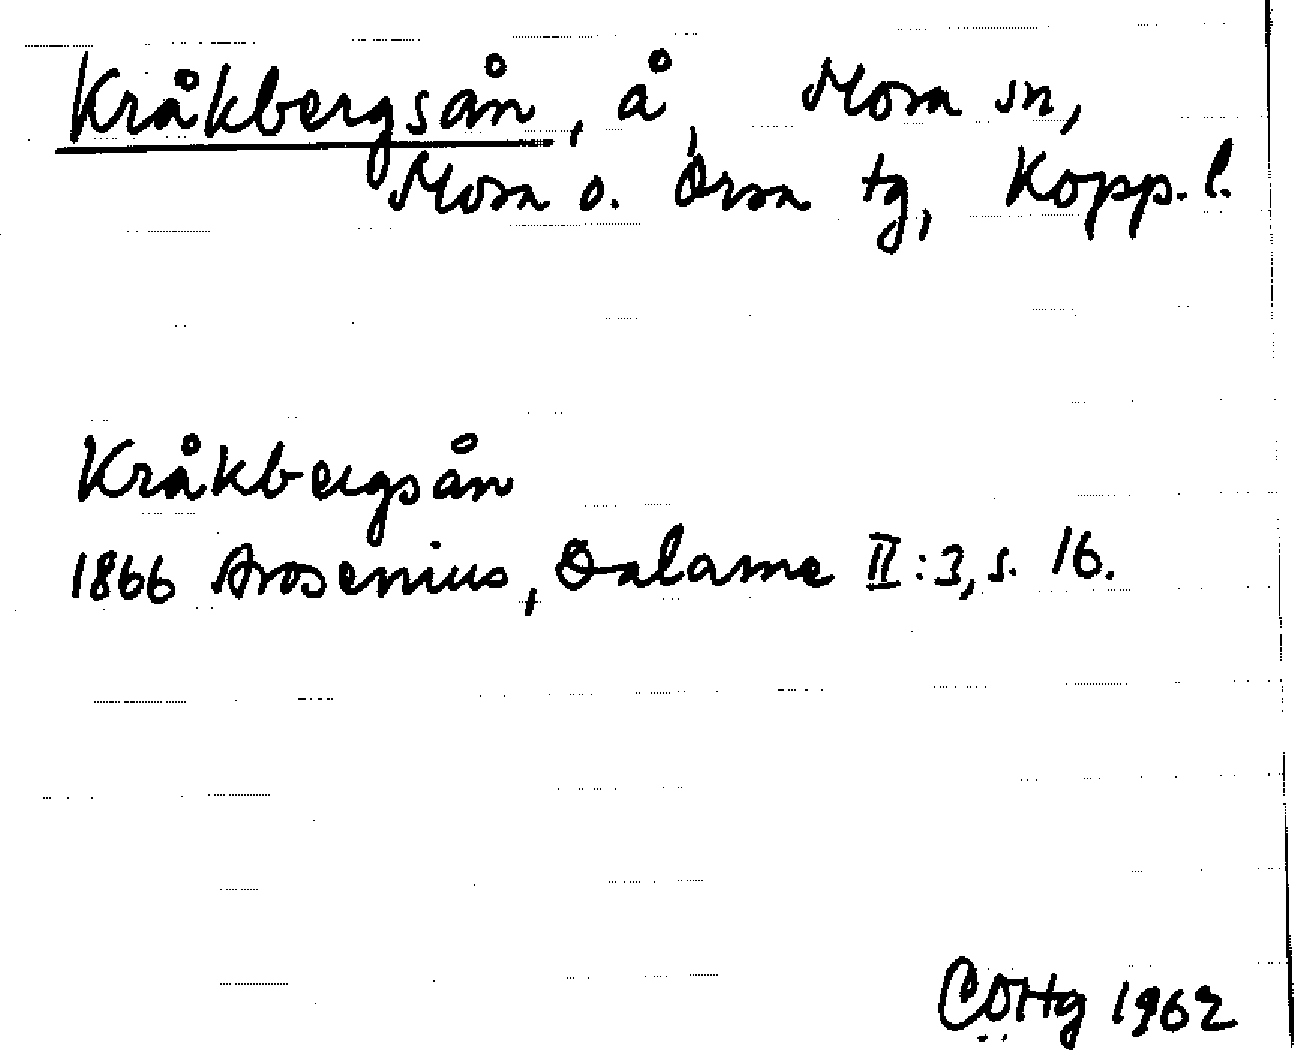 Kråkbergsån, å, Mora sn,
Mora o. Orsa tg, Kopp. l.
Kråkbergsån
1866 Arosenius, Dalarne II:3, s. 16.
1962